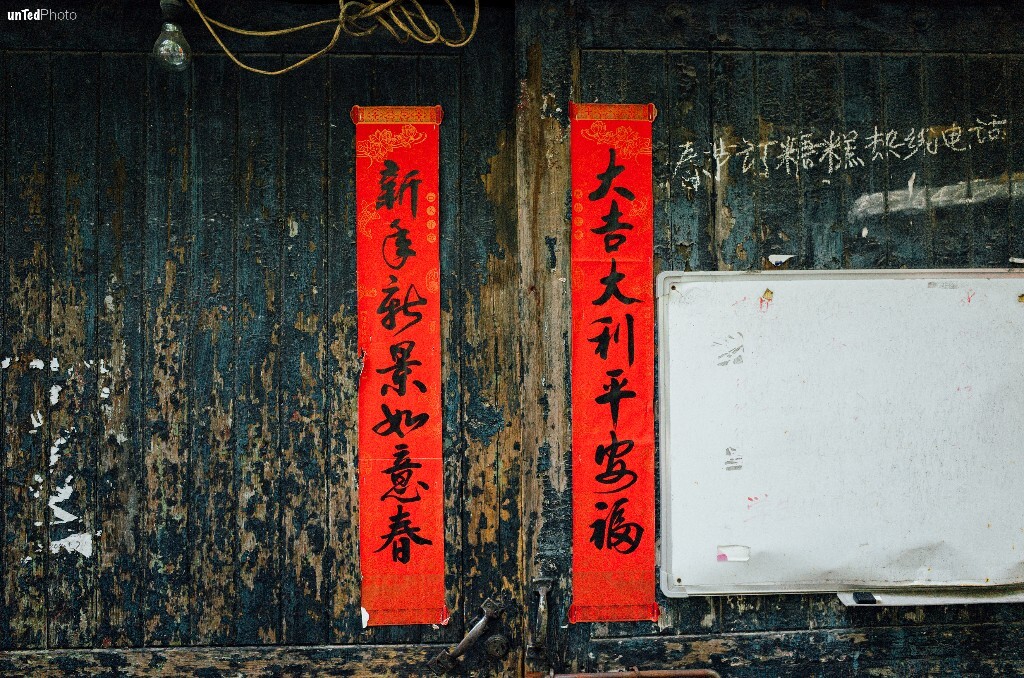 unTedPhoto
大吉大利平安福
新年新景如意春
春节订糖糕热线电话